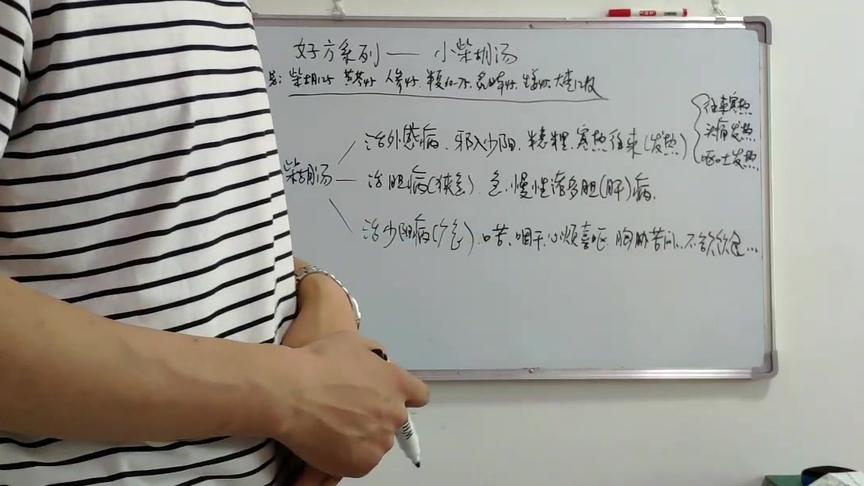 好方系列——小柴胡汤
柴胡12g 黄芩4g 人参4g 半夏 大枣12枚
治外感病、邪入少阳、半表半里、寒热往来(发热)
往来寒热
头痛发热
呕吐发热
柴胡汤
治胆病(狭急)、急、慢性诸多胆(肝)病.
治少阳病(广急)、口苦、咽干、心烦喜呕、胸胁苦闷、不欲饮食…